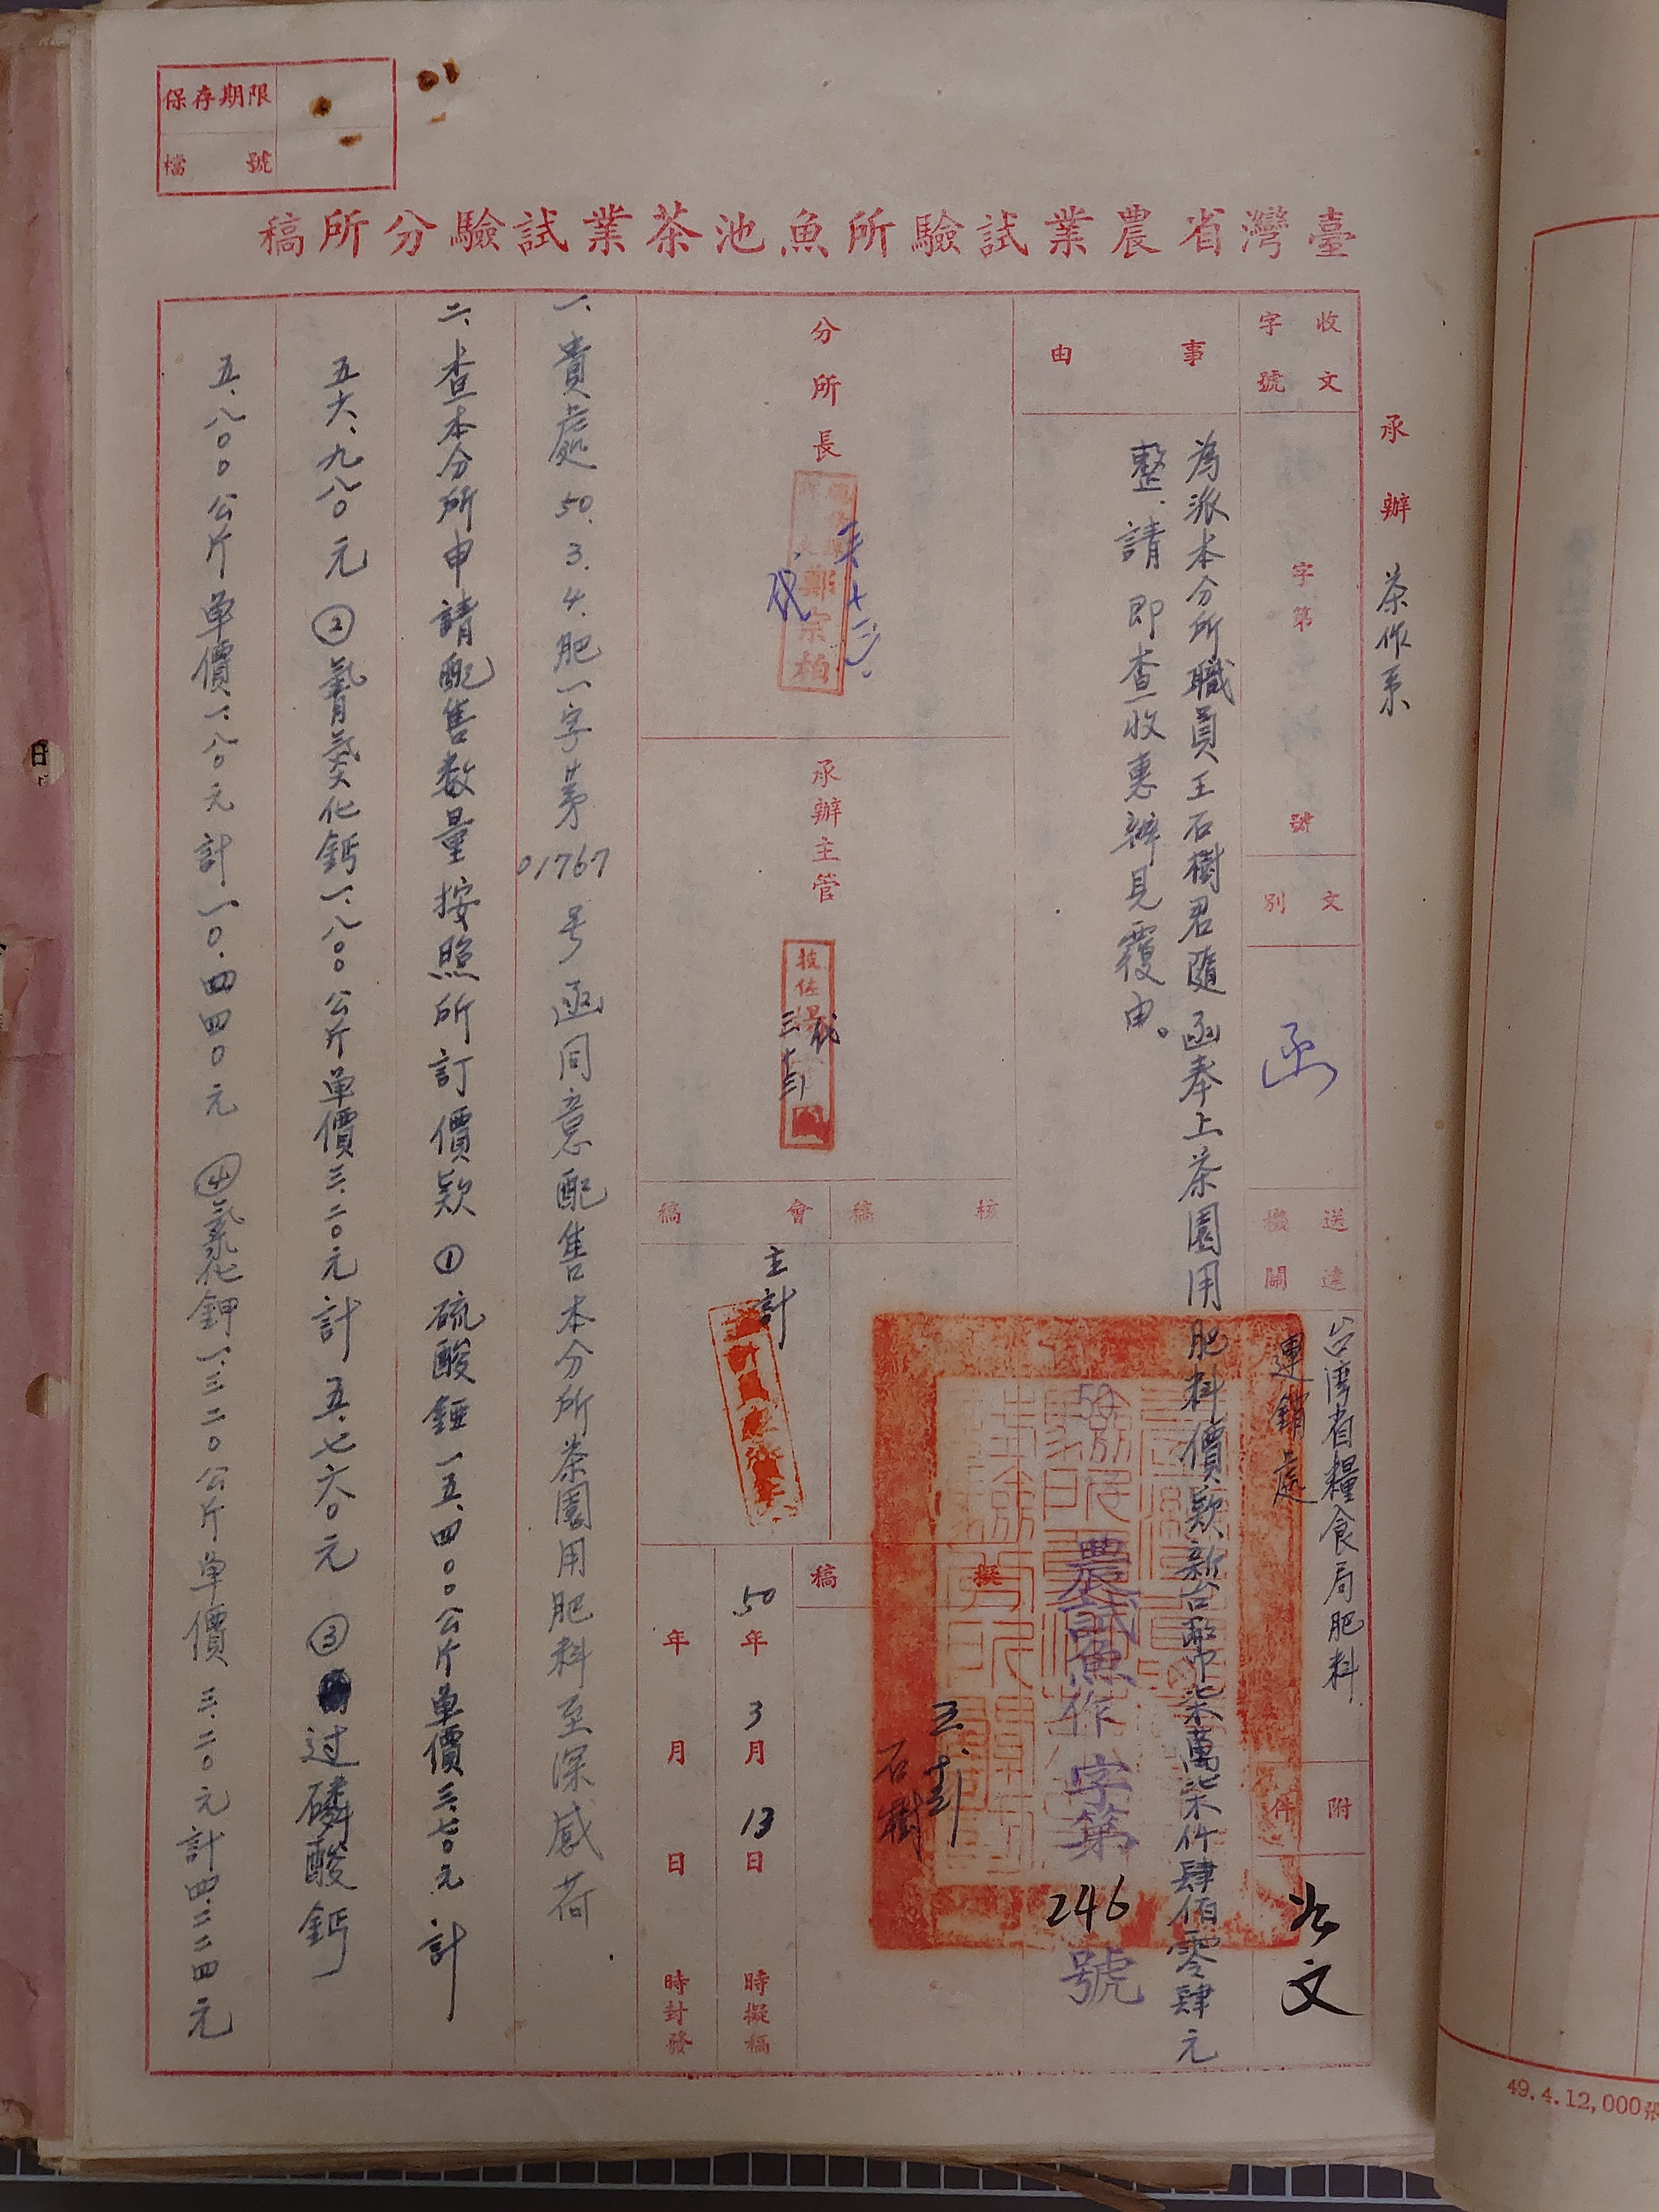 保存期限
檔號
臺灣省農業試驗所魚池茶業試驗分所稿
承辦 茶作系
收文字號
字第 號
文別
函
送達機關
台湾省糧食局肥料
運銷處
附件
公文
事由
為派本分所職員王石樹君隨函奉上茶園用肥料價款新台幣柒萬柒仟肆佰零肆元
整.請即查收惠辦見覆由。
50
農試魚作字第246號
分所長
鄭宗柏
代
承辦主管
技佐
代
三十三
核稿
會稿
主計
擬稿
石樹
50年3月13日 時擬稿
年 月 日 時封發
一、貴處50.3.4.肥一字第01767号函同意配售本分所茶園用肥料至深感荷.
二、查本分所申請配售数量按照所訂價款①硫酸錏一五.四〇〇公斤单價三.七〇元計
五六.九八〇元②氰氮化鈣一.八〇〇公斤单價三.二〇元計五.七六〇元③过磷酸鈣
五.八〇〇公斤单價一.八〇元計一〇.四四〇元④氯化鉀一.三二〇公斤单價三.二〇元計四.二二四元
49.4.12,000張